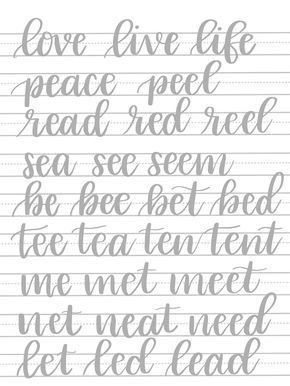 love live life
peace peel
read red reel
sea see seem
be bee bet bed
tee tea ten tent
me met meet
net neat need
let led lead